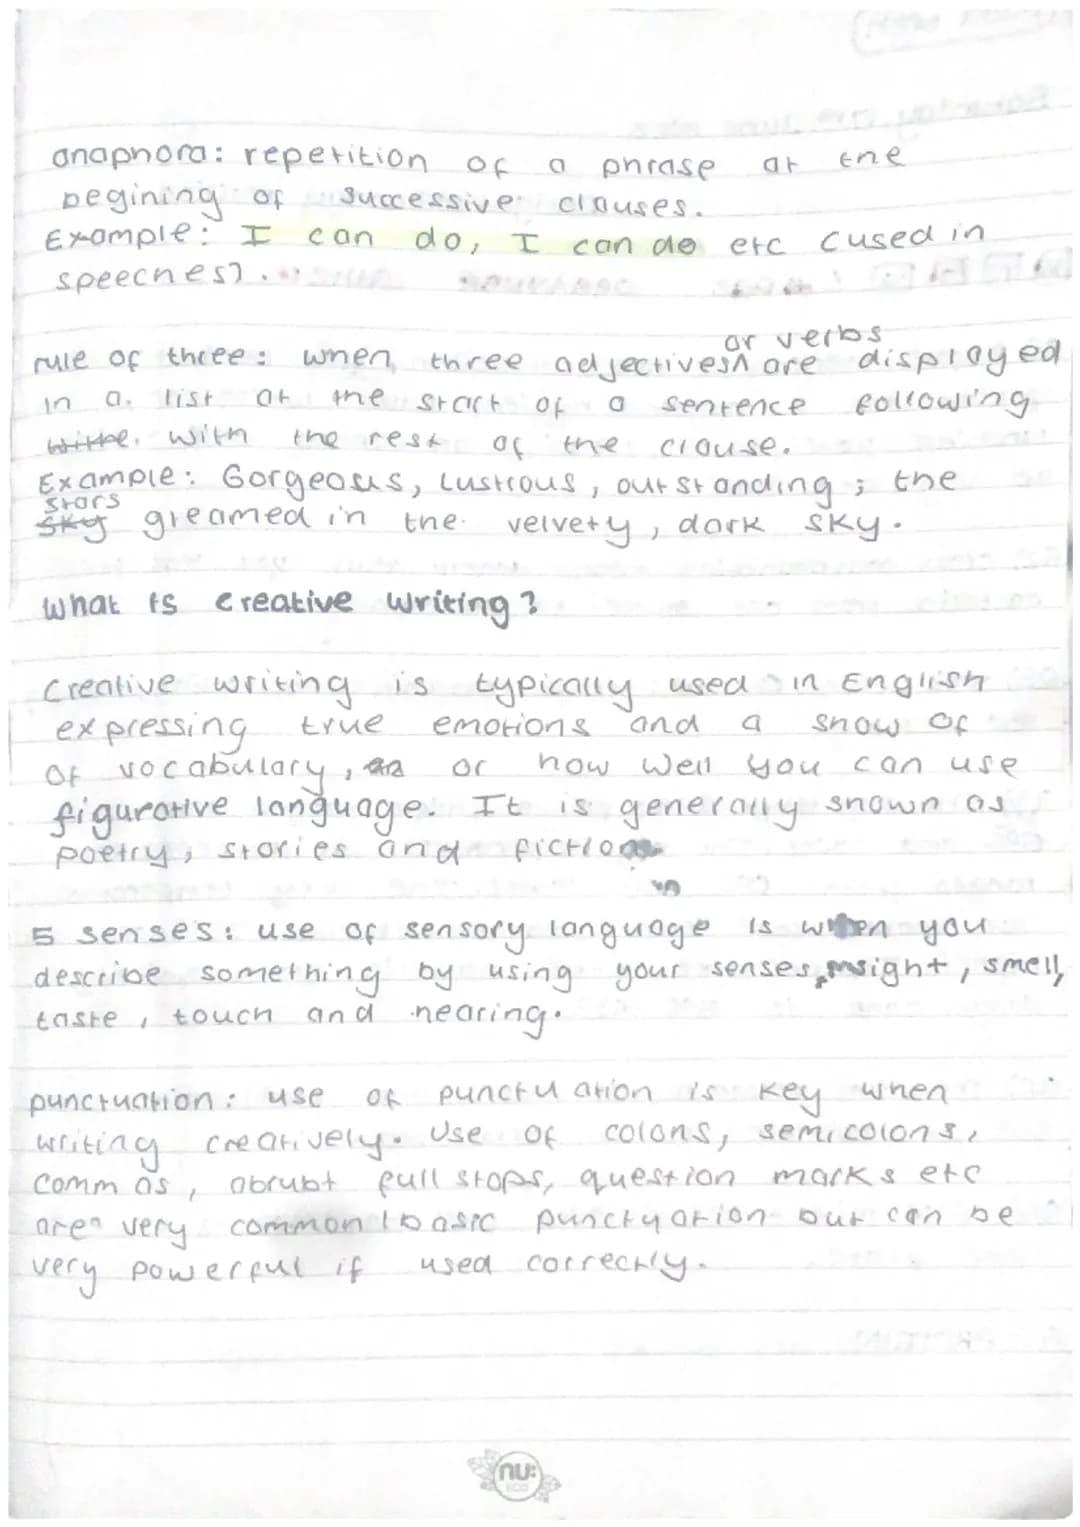 anaphora: repetition of a phrase at the
begining of successive clauses.
Example: I can do, I can do etc (used in
speeches).
or verbs
rule of three: when three adjectives^ are displayed
in a list at the start of a sentence following
with the rest of the clause.
Example: Gorgeous, Lustrous, outstanding; the
stars
sky gleamed in the velvety, dark sky.
What is creative writing?
Creative writing is typically used in English
expressing true emotions and a show of
of vocabulary, or how well you can use
figurative language. It is generally shown as
poetry, stories and fiction
5 senses: use of sensory language is when you
describe something by using your senses, sight, smell,
taste, touch and hearing.
punctuation: use of punctuation is key when
writing creatively. Use of colons, semicolons,
commas, abrubt full stops, question marks etc
are very common/basic punctuation but can be
very powerful if used correctly.
nu:
eco